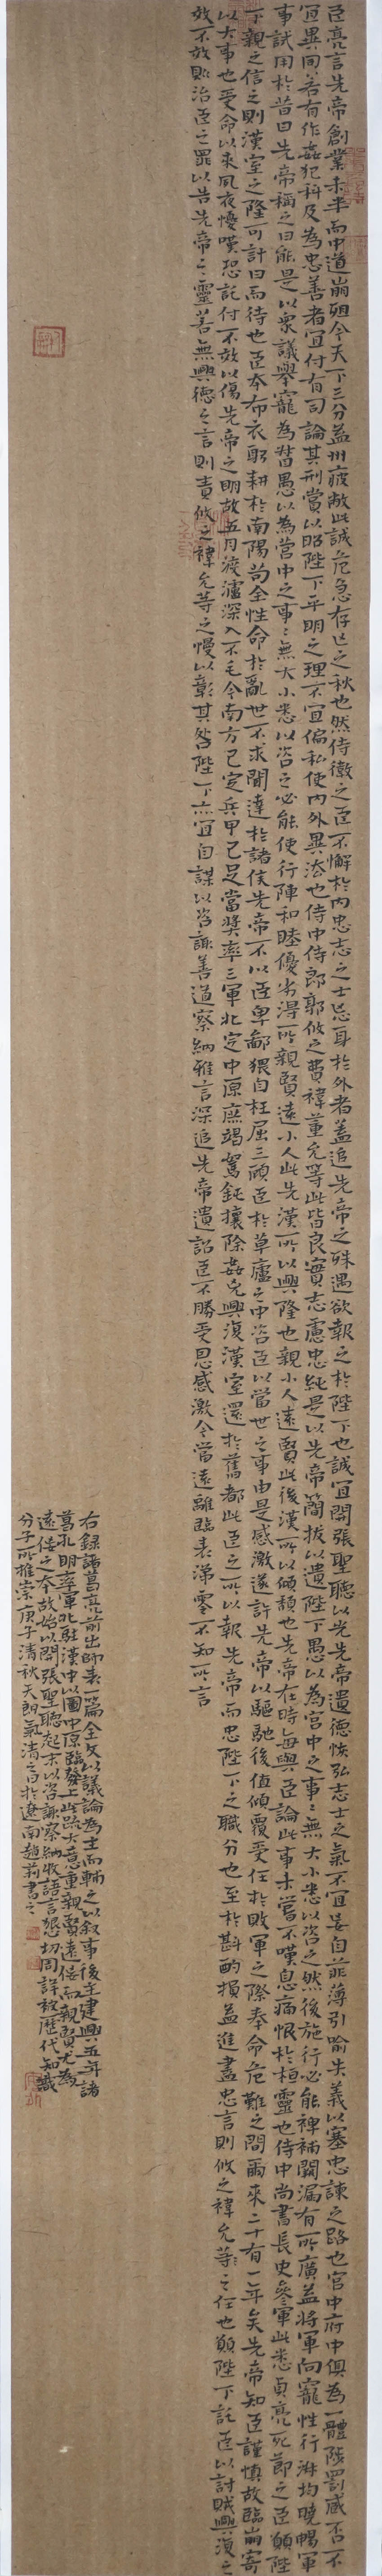 臣亮言先帝創業未半而中道崩殂今天下三分益州疲敝此誠危急存亡之秋也然侍衛之臣不懈於內忠志之士忘身於外者蓋追先帝之殊遇欲報之於陛下也誠宜開張聖聽以光先帝遺德恢弘志士之氣不宜妄自菲薄引喻失義以塞忠諫之路也宮中府中俱為一體陟罰臧否不
宜異同若有作姦犯科及為忠善者宜付有司論其刑賞以昭陛下平明之理不宜偏私使內外異法也侍中侍郎郭攸之費禕董允等此皆良實志慮忠純是以先帝簡拔以遺陛下愚以為宮中之事〻無大小悉以咨之然後施行必能裨補闕漏有所廣益將軍向寵性行淑均曉暢軍
事試用於昔日先帝稱之曰能是以眾議舉寵為督愚以為營中之事〻無大小悉以咨之必能使行陣和睦優劣得所親賢遠小人此先漢所以興隆也親小人遠賢此後漢所以傾頹也先帝在時每與臣論此事未嘗不嘆息痛恨於桓靈也侍中尚書長史參軍此悉貞亮死節之臣願陛
下親之信之則漢室之隆可計日而待也臣本布衣躬耕於南陽苟全性命於亂世不求聞達於諸侯先帝不以臣卑鄙猥自枉屈三顧臣於草廬之中咨臣以當世之事由是感激遂許先帝以驅馳後值傾覆受任於敗軍之際奉命危難之間爾來二十有一年矣先帝知臣謹慎故臨崩寄
以大事也受命以來夙夜憂嘆恐託付不效以傷先帝之明故五月渡瀘深入不毛今南方已定兵甲已足當獎率三軍北定中原庶竭駑鈍攘除姦兇興復漢室還於舊都此臣之所以報先帝而忠陛下之職分也至於斟酌損益進盡忠言則攸之禕允等之任也願陛下託臣以討賊興復之
效不效則治臣之罪以告先帝之靈若無興德之言則責攸之禕允等之慢以彰其咎陛下亦宜自謀以咨諏善道察納雅言深追先帝遺詔臣不勝受恩感激今當遠離臨表涕零不知所言
右錄諸葛亮前出師表一篇全文以議論為主而輔之以敘事後主建興五年諸
葛孔明率軍北駐漢中以圖中原臨發上此疏大意重親賢遠佞而親賢尤為
遠佞之本故始以開張聖聽起末以咨諏察納收語言懇切周詳故歷代知識
分子所推崇庚子清秋天朗氣清之日於遼南趙莉書之